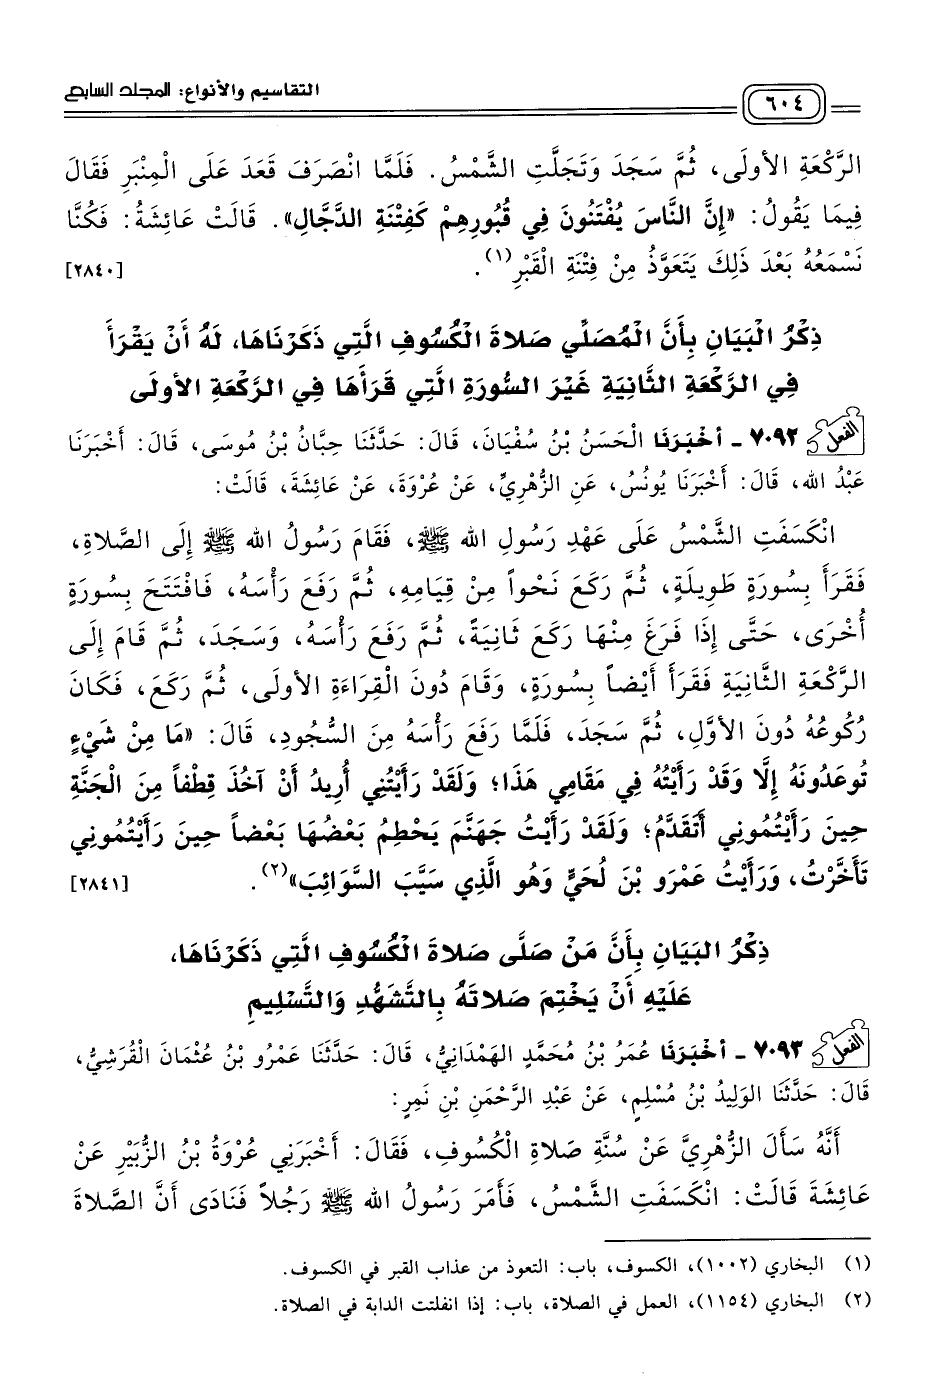 التقاسيم والأنواع: المجلد السابع
٦٠٤
الرَّكْعَةِ الأولَى، ثُمَّ سَجَدَ وَتَجَلَّتِ الشَّمْسُ. فَلَمَّا انْصَرَفَ قَعَدَ عَلَى الْمِنْبَرِ فَقَالَ
فِيمَا يَقُولُ: «إِنَّ النَّاسَ يُفْتَنُونَ فِي قُبُورِهِمْ كَفِتْنَةِ الدَّجَّالِ». قَالَتْ عَائِشَةُ: فَكُنَّا
نَسْمَعُهُ بَعْدَ ذَلِكَ يَتَعَوَّذُ مِنْ فِتْنَةِ الْقَبْرِ(١). [٢٨٤٠]
ذِكْرُ الْبَيَانِ بِأَنَّ الْمُصَلِّي صَلاةَ الْكُسُوفِ الَّتِي ذَكَرْنَاهَا، لَهُ أَنْ يَقْرَأَ
فِي الرَّكْعَةِ الثَّانِيَةِ غَيْرَ السُّورَةِ الَّتِي قَرَأَهَا فِي الرَّكْعَةِ الأولَى
الفعل ٧٠٩٢ ـ أخْبَرَنَا الْحَسَنُ بْنُ سُفْيَانَ، قَالَ: حَدَّثَنَا حِبَّانُ بْنُ مُوسَى، قَالَ: أَخْبَرَنَا
عَبْدُ الله، قَالَ: أَخْبَرَنَا يُونُسُ، عَنِ الزُّهْرِيِّ، عَنْ عُرْوَةَ، عَنْ عَائِشَةَ، قَالَتْ:
انْكَسَفَتِ الشَّمْسُ عَلَى عَهْدِ رَسُولِ الله ﷺ، فَقَامَ رَسُولُ الله ﷺ إِلَى الصَّلاةِ،
فَقَرَأَ بِسُورَةٍ طَوِيلَةٍ، ثُمَّ رَكَعَ نَحْواً مِنْ قِيَامِهِ، ثُمَّ رَفَعَ رَأْسَهُ، فَافْتَتَحَ بِسُورَةٍ
أُخْرَى، حَتَّى إِذَا فَرَغَ مِنْهَا رَكَعَ ثَانِيَةً، ثُمَّ رَفَعَ رَأْسَهُ، وَسَجَدَ، ثُمَّ قَامَ إِلَى
الرَّكْعَةِ الثَّانِيَةِ فَقَرَأَ أَيْضاً بِسُورَةٍ، وَقَامَ دُونَ الْقِرَاءَةِ الأولَى، ثُمَّ رَكَعَ، فَكَانَ
رُكُوعُهُ دُونَ الأوَّلِ، ثُمَّ سَجَدَ، فَلَمَّا رَفَعَ رَأْسَهُ مِنَ السُّجُودِ، قَالَ: «مَا مِنْ شَيْءٍ
تُوعَدُونَهُ إِلَّا وَقَدْ رَأَيْتُهُ فِي مَقَامِي هَذَا؛ وَلَقَدْ رَأَيْتُنِي أُرِيدُ أَنْ آخُذَ قِطْفاً مِنَ الْجَنَّةِ
حِينَ رَأَيْتُمُونِي أَتَقَدَّمُ؛ وَلَقَدْ رَأَيْتُ جَهَنَّمَ يَحْطِمُ بَعْضُهَا بَعْضاً حِينَ رَأَيْتُمُونِي
تَأَخَّرْتُ، وَرَأَيْتُ عَمْرَو بْنَ لُحَيٍّ وَهُوَ الَّذِي سَيَّبَ السَّوَائِبَ»(٢). [٢٨٤١]
ذِكْرُ البَيَانِ بِأَنَّ مَنْ صَلَّى صَلاةَ الْكُسُوفِ الَّتِي ذَكَرْنَاهَا،
عَلَيْهِ أَنْ يَخْتِمَ صَلاتَهُ بِالتَّشَهُّدِ وَالتَّسْلِيمِ
الفعل ٧٠٩٣ ـ أخْبَرَنَا عُمَرُ بْنُ مُحَمَّدٍ الهَمْدَانِيُّ، قَالَ: حَدَّثَنَا عَمْرُو بْنُ عُثْمَانَ الْقُرَشِيُّ،
قَالَ: حَدَّثَنَا الوَلِيدُ بْنُ مُسْلِمٍ، عَنْ عَبْدِ الرَّحْمَنِ بْنِ نَمِرٍ:
أَنَّهُ سَأَلَ الزُّهْرِيَّ عَنْ سُنَّةِ صَلاةِ الْكُسُوفِ، فَقَالَ: أَخْبَرَنِي عُرْوَةُ بْنُ الزُّبَيْرِ عَنْ
عَائِشَةَ قَالَتْ: انْكَسَفَتِ الشَّمْسُ، فَأَمَرَ رَسُولُ الله ﷺ رَجُلاً فَنَادَى أَنَّ الصَّلاةَ
(١) البخاري (١٠٠٢)، الكسوف، باب: التعوذ من عذاب القبر في الكسوف.
(٢) البخاري (١١٥٤)، العمل في الصلاة، باب: إذا انفلتت الدابة في الصلاة.